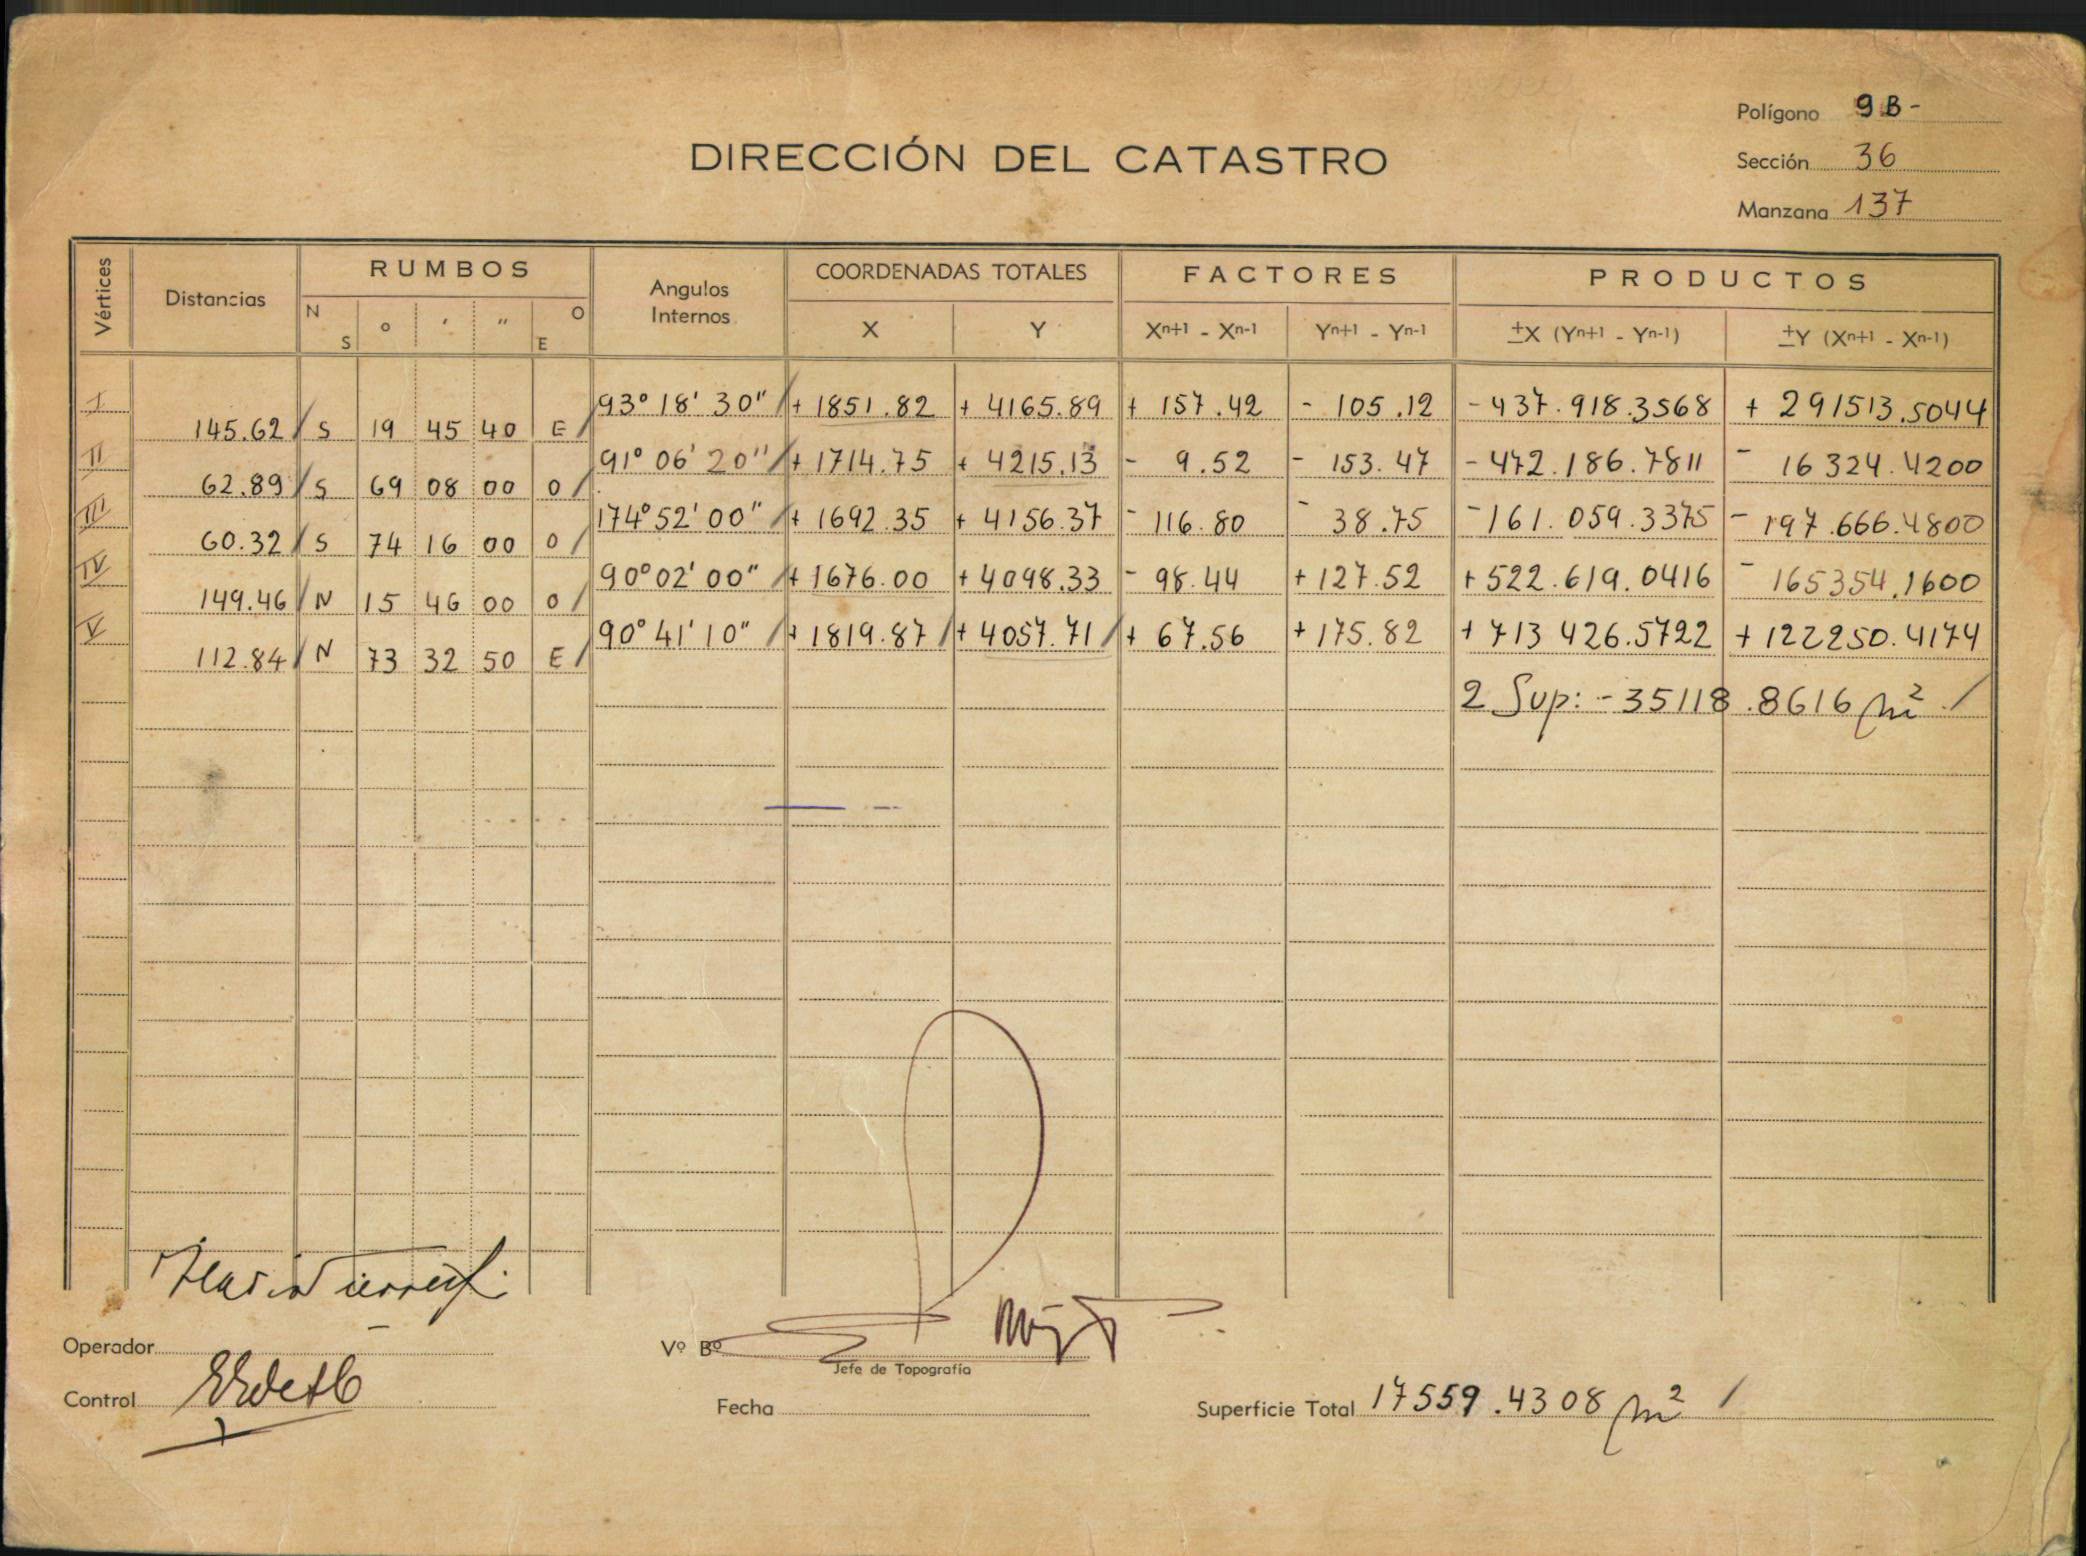 Polígono 9B-
DIRECCIÓN DEL CATASTRO
Sección 36
Manzana 137
Vértices Distancias RUMBOS Angulos Internos COORDENADAS TOTALES FACTORES PRODUCTOS
N S ° ' " O E X Y Xn+1 - Xn-1 Yn+1 - Yn-1 ±X (Yn+1 - Yn-1) ±Y (Xn+1 - Xn-1)
I 93° 18' 30" + 1851.82 + 4165.89 + 157.42 - 105.12 - 437.918.3568 + 291513.5044
145.62 S 19 45 40 E
II 91° 06' 20" + 1714.75 + 4215.13 - 9.52 - 153.47 - 472.186.7811 - 16324.4200
62.89 S 69 08 00 O
III 174° 52' 00" + 1692.35 + 4156.37 - 116.80 - 38.75 - 161.059.3375 - 197.666.4800
60.32 S 74 16 00 O
IV 90° 02' 00" + 1676.00 + 4098.33 - 98.44 + 127.52 + 522.619.0416 - 165354.1600
149.46 N 15 46 00 O
V 90° 41' 10" + 1819.87 + 4057.71 + 67.56 + 175.82 + 713426.5722 + 122250.4174
112.84 N 73 32 50 E
2 Sup: - 35118.8616 m²
Operador
Vº Bº
Jefe de Topografía
Control
Fecha
Superficie Total 17559.4308 m²